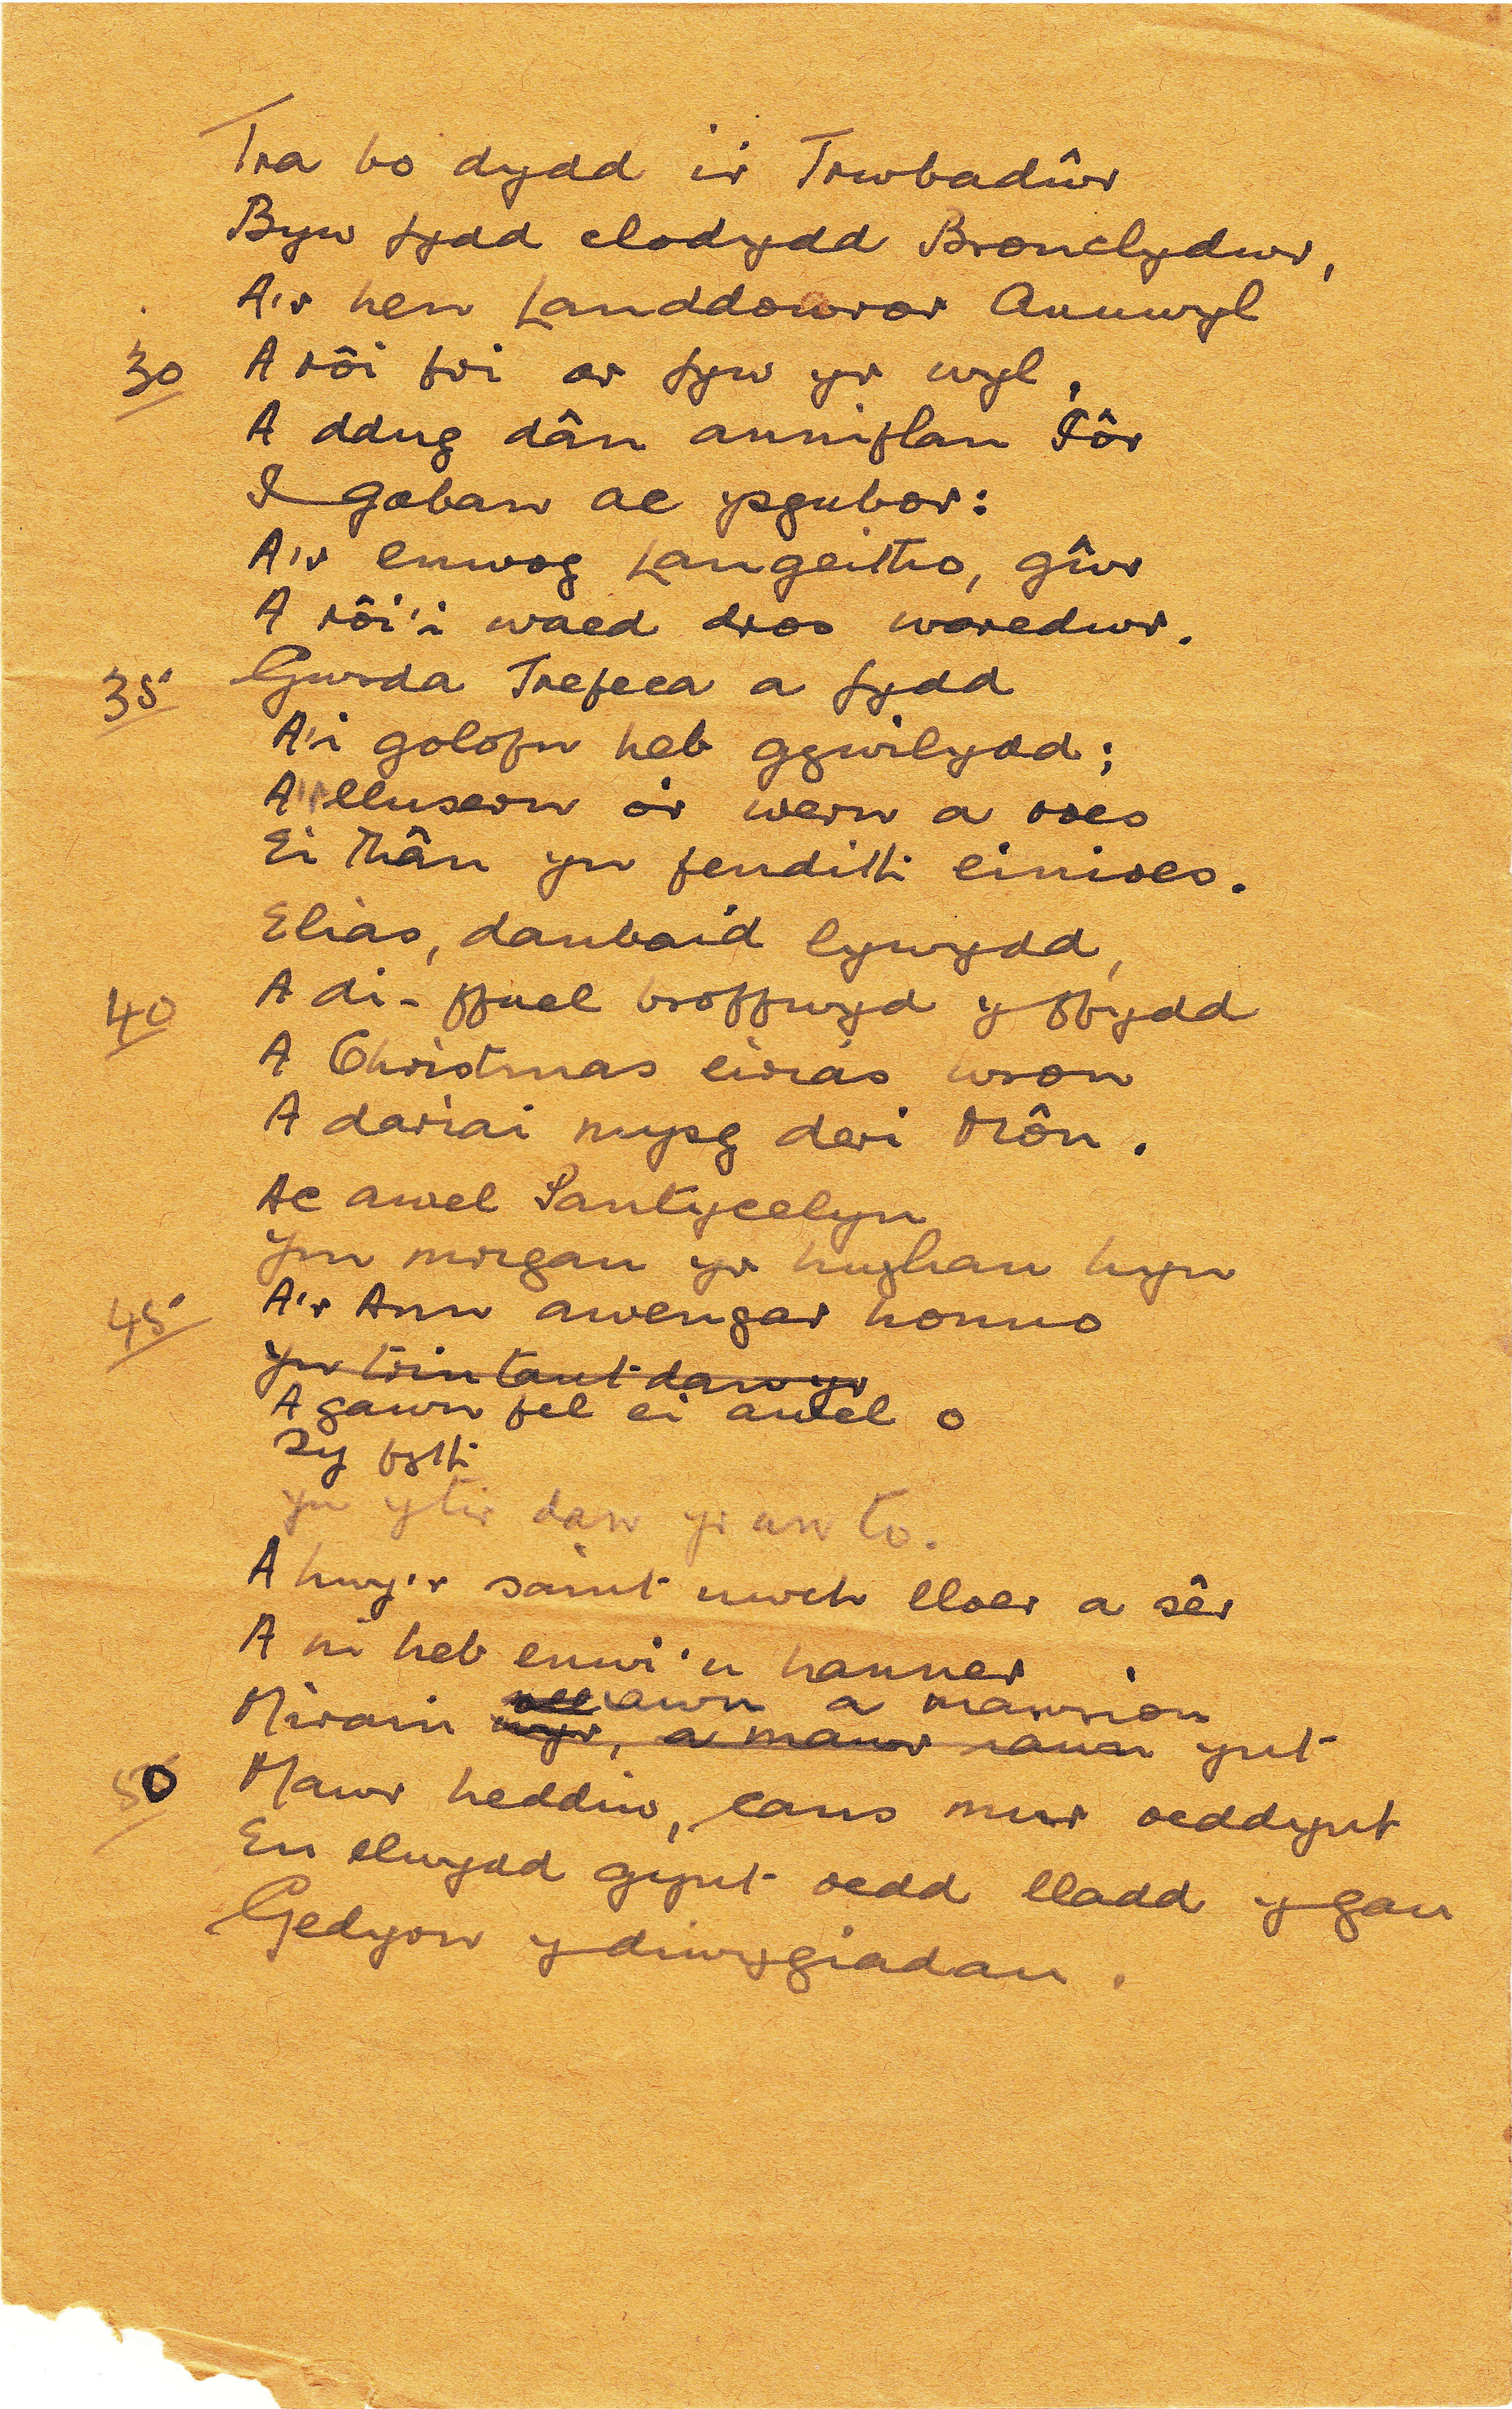 Tra bo dydd i'r Trwbadŵr
Byw fydd clodydd Bronclydwr,
A'r hen Landdowror Annwyl
30 A rôi fri ar fyw yr wyl,
A ddug dân anniflan Iôr
I gaban ac ysgubor:
A'r enwog Langeitho, gŵr
A rôi'i waed dros waredwr.
35 Gwrda Trefeca a fydd
A'i golofn heb gywilydd;
A'r llusern o'r wern a roes
Ei thân yn fendith einioes.
Elias, danbaid lywydd,
40 A di-ffuel broffwyd y ffydd
A Christmas eirias wron
A dariai mysg deri Môn.
Ac awel Pantycelyn
Ym morgan yr hughan hyn
45 A'r Ann awengar honno
Yn trin tant dawn yr
A gawn fel ei awel o
Sy fyth
Yn y tir dan yr un to.
A hwy'r saint uwch lloer a sêr
A ni heb enwi'u hanner
iawn a mawrion
Mirain wyr, a mawr iawn ynt
50 Mawr heddiw, cans mur oeddynt
Eu elwydd gynt oedd lladd y gau
Gedyrn y diwygiadau.